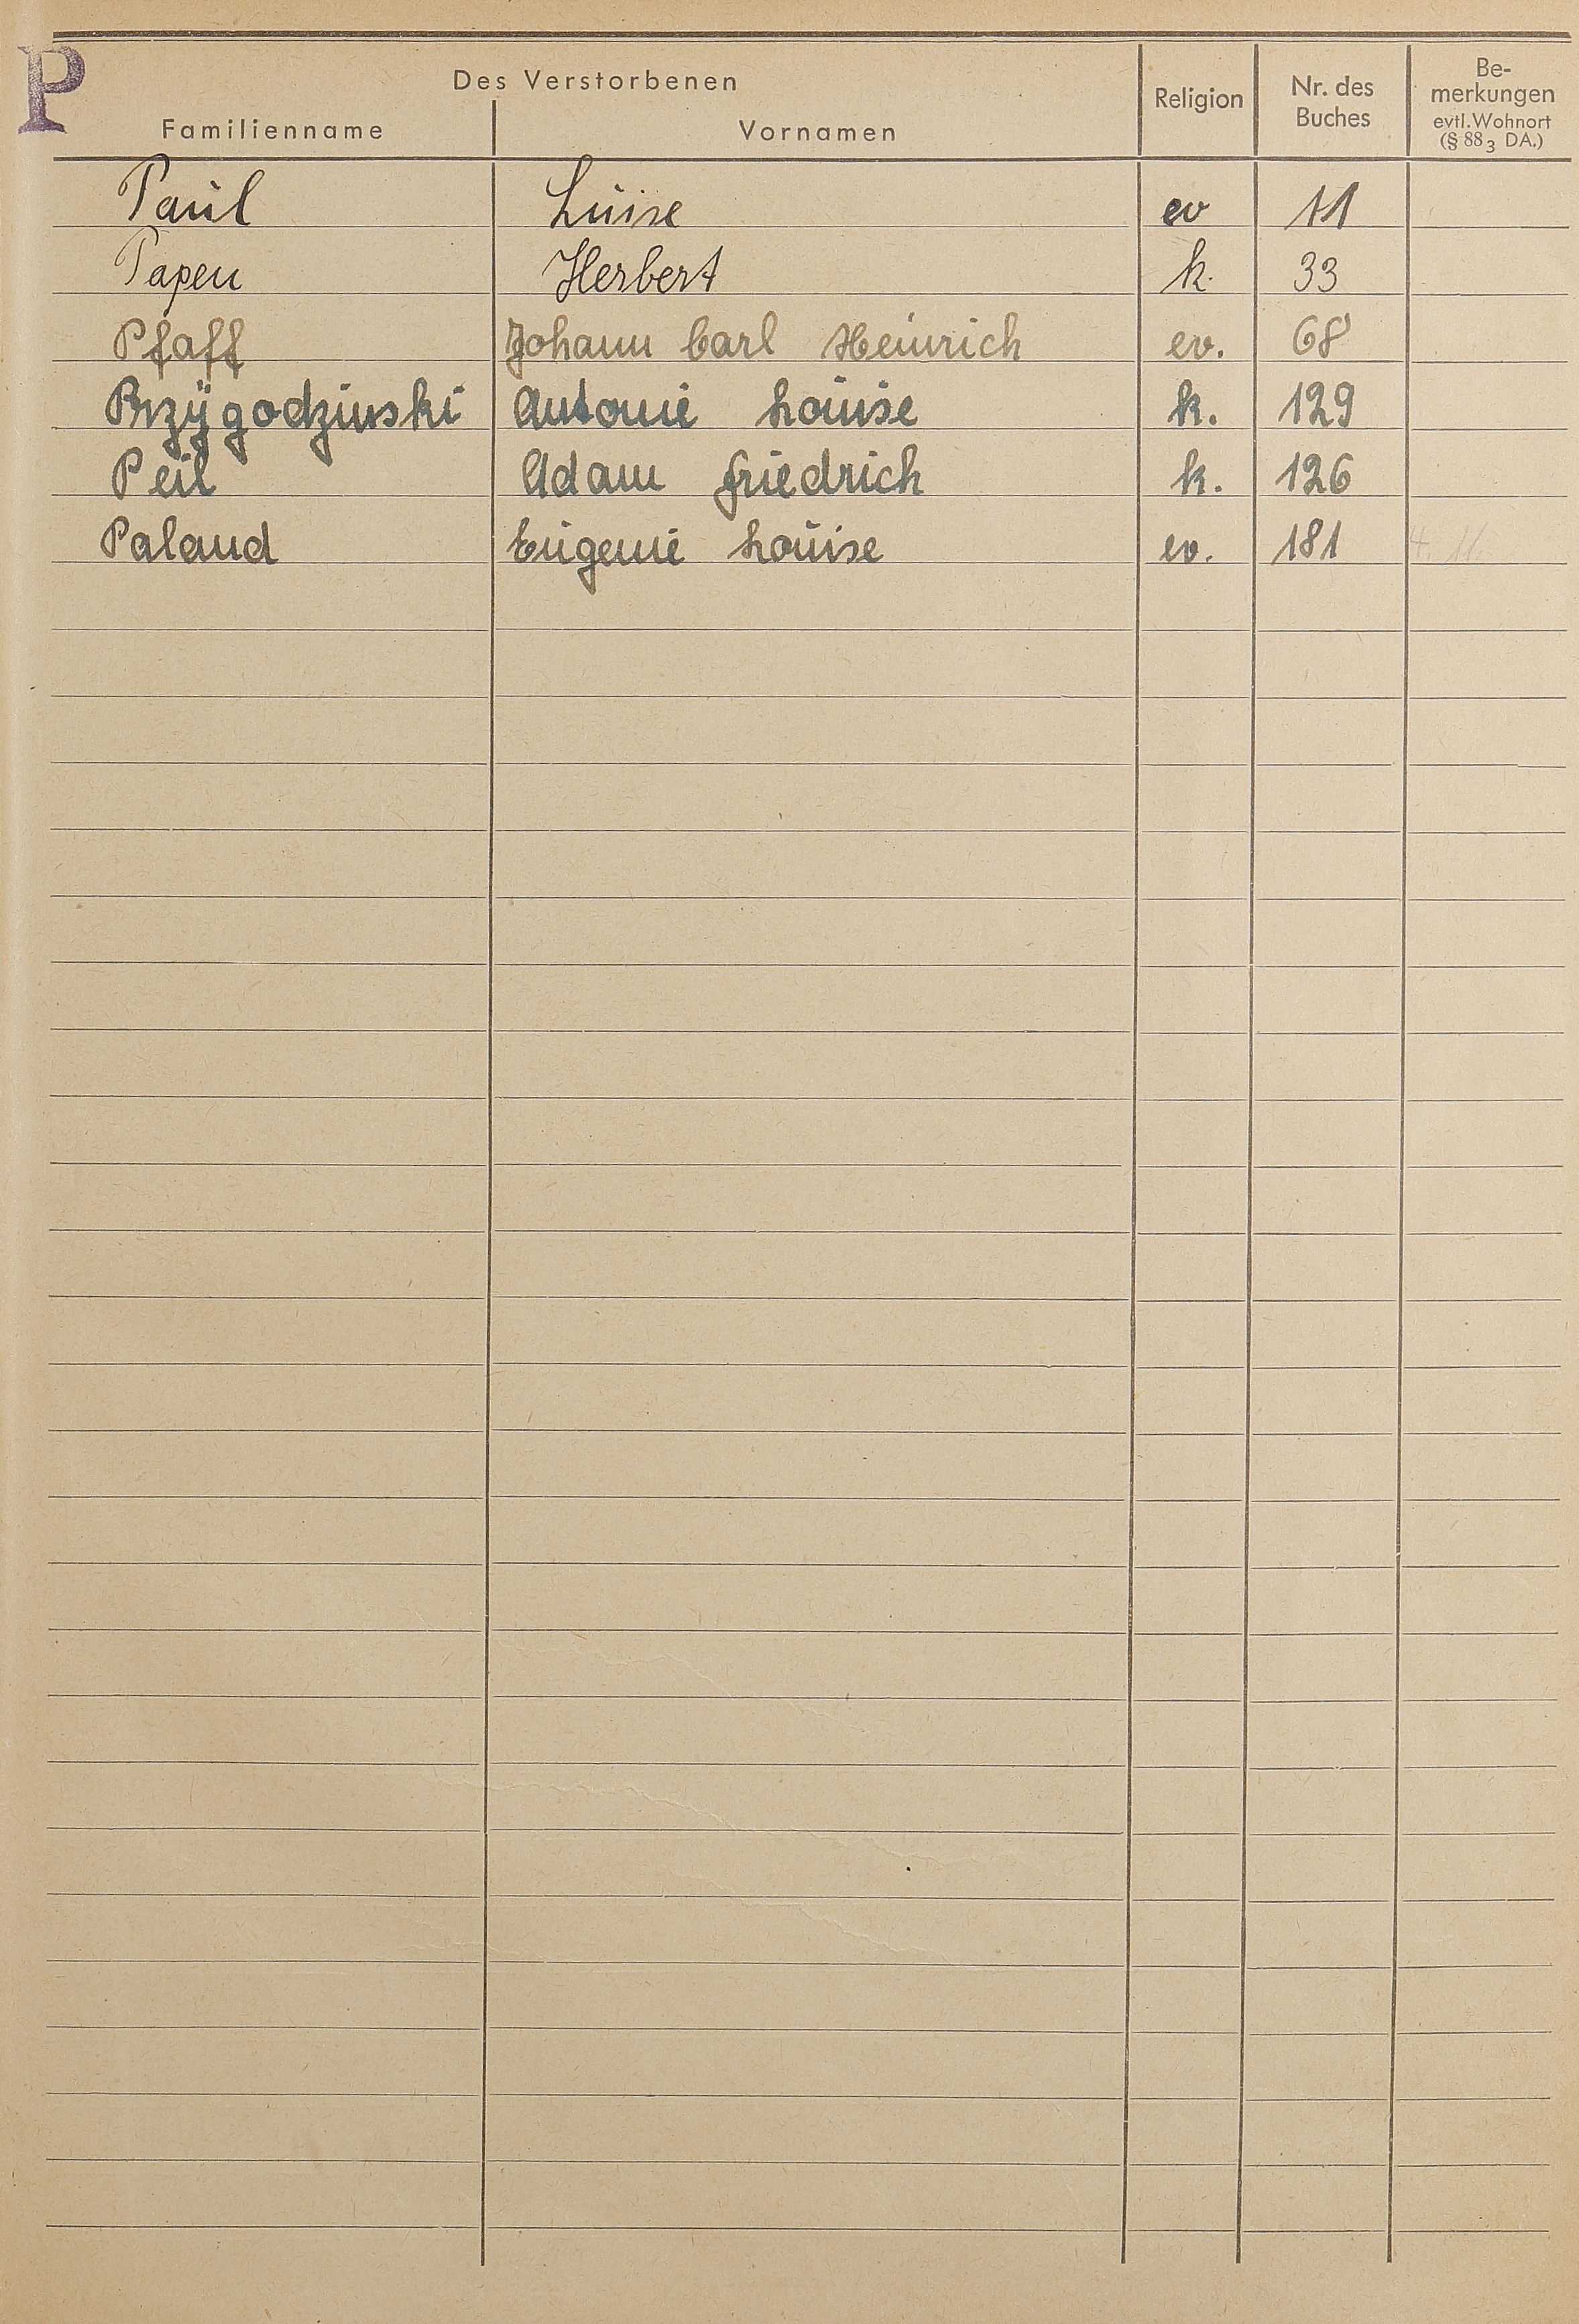 P
Des Verstorbenen
Familienname Vornamen Religion Nr. des Buches Be-merkungen evtl. Wohnort (§ 88 3 DA.)
Paul Luise ev 11
Papen Herbert k. 33
Pfaff Johann Carl Heinrich ev. 68
Przygodzinski Antonie Louise k. 129
Peil Adam Friedrich k. 126
Paland Eugenie Louise ev. 181